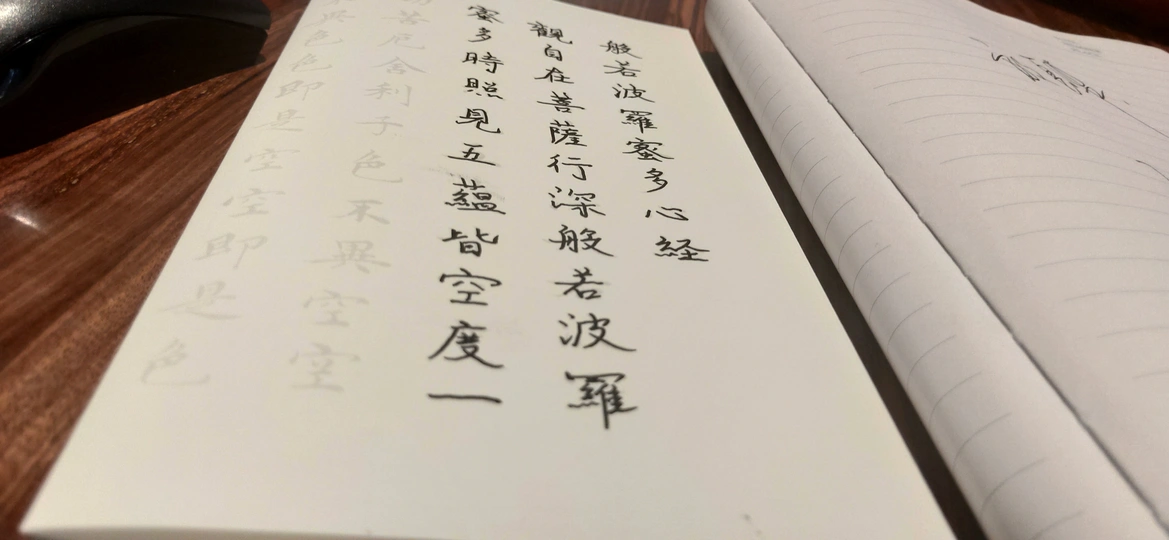 般若波羅蜜多心経
觀自在菩薩行深般若波羅
蜜多時照見五蘊皆空度一
苦厄舎利子色不異空空
異色色即是空空即是色